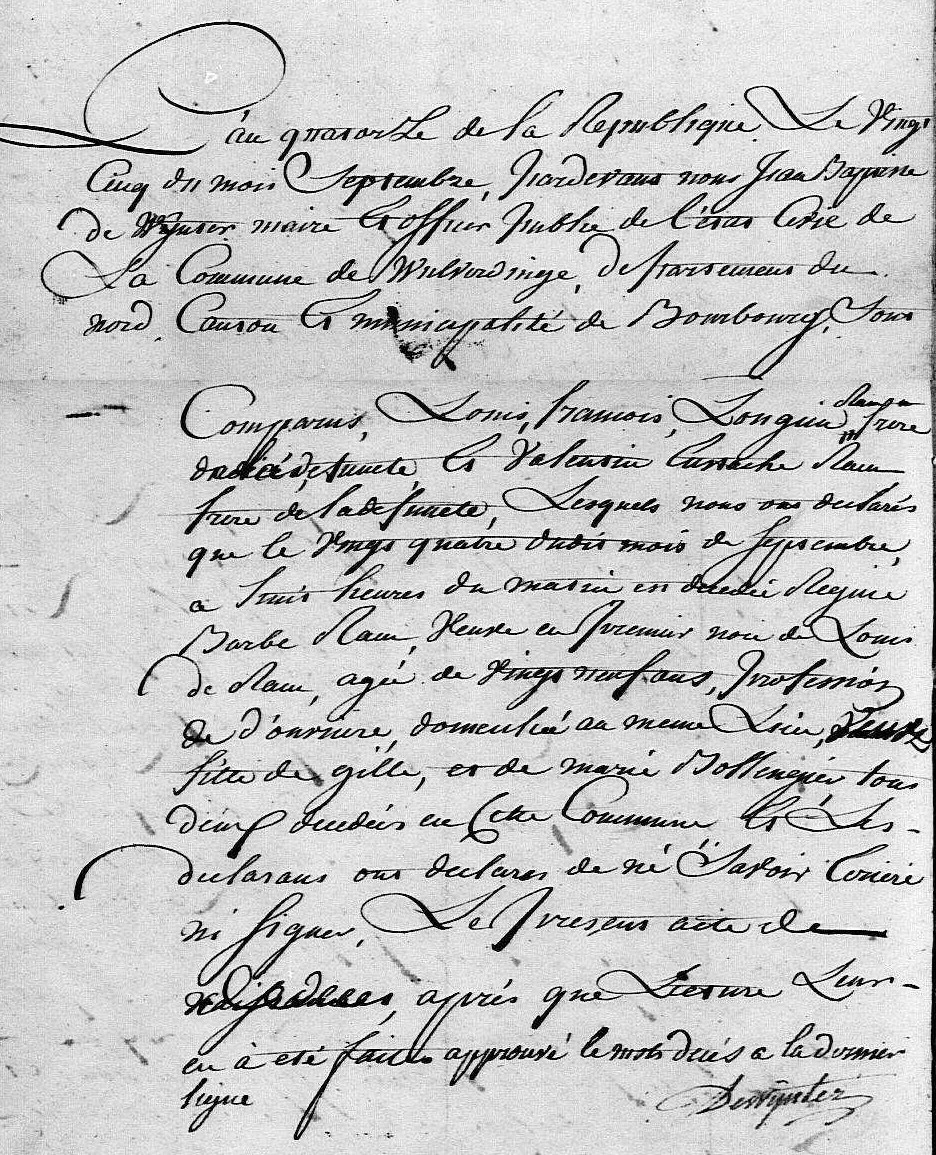 L'an quatorze de la Republique Le Vingt
Cinq du mois Septembre, pardevant nous Jean Baptiste
de Wynter maire Et officier publie de l'état Civie de
La Commune de Wulverdinge, departement du
nord Canton Et municipalité de Bourbourg, Sont
Comparus, Louis, francois, Longuin frere
defuncte Et Valentin Eustache Ram
frere de la defuncte, Lesquels nous ont declarés
que le Vingt quatre dudit mois de Septembre,
a huit heures du matin est decedée Regine
Barbe Ram, Veuve en premier noce de Louis
de Ram, agée de Vingt neuf ans, profession
de d'ouvriere, domeciliée au meme Lieu,
fille de gille, et de marie Bollengier tous
deux decedées en Cette Commune Et Les-
declarans ont declares de né Savoir Ecriere
ni Signer, Le present acte de
après que Lecture Leur-
en à eté faite approuvé le mots decés a la dernier
ligne
Dewynter